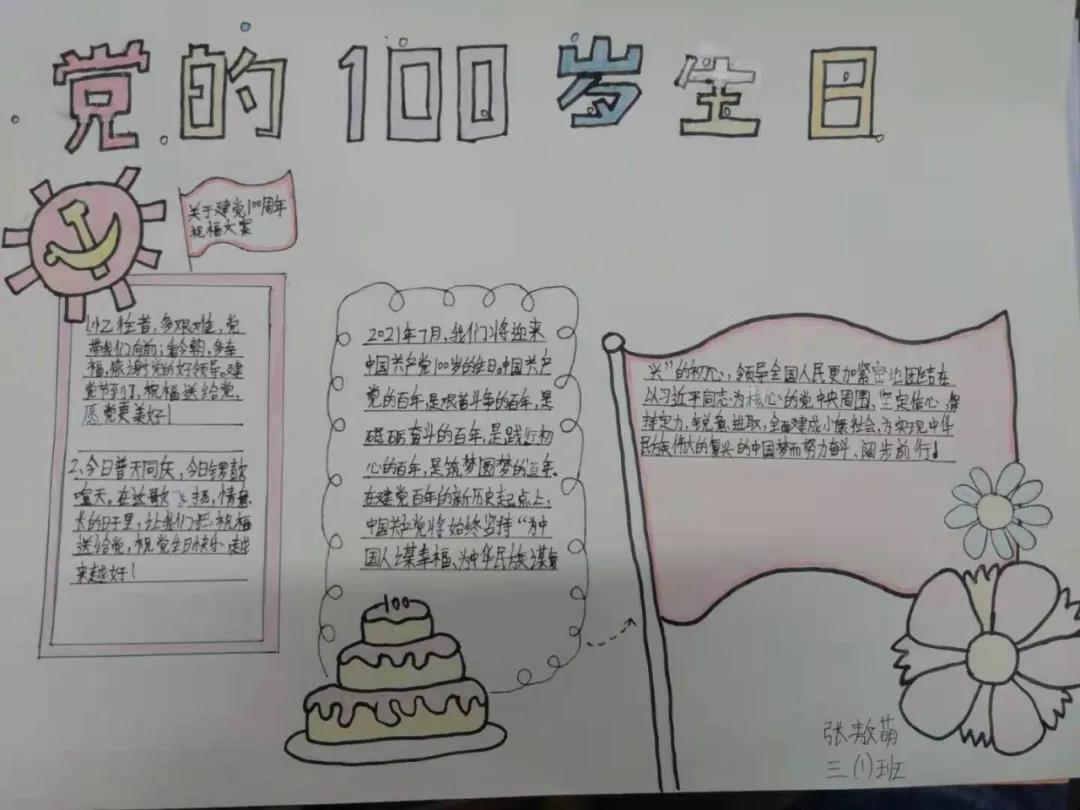 党的100岁生日
关于建党100周年
祝福文案
1、忆往昔,多艰难,党
带我们向前;看今朝,多幸
福,感谢党的好领导。建
党节到了,祝福送给党,
愿党更美好!
2、今日普天同庆,今日锣鼓
喧天。在这歌飞扬,情意
长的日子里,让我们把祝福
送给党,祝党生日快乐,越
来越好!
2021年7月,我们将迎来
中国共产党100岁的生日。中国共产
党的百年,是艰苦斗争的百年,是
砥砺奋斗的百年,是践行初
心的百年,是筑梦圆梦的百年。
在建党百年的新历史起点上,
中国共产党将始终坚持“为中
国人谋幸福、为中华民族谋复
100
兴”的初心,领导全国人民更加紧密地团结在
以习近平同志为核心的党中央周围,坚定信心,保
持定力,锐意进取,全面建成小康社会,为实现中华
民族伟大的复兴的中国梦而努力奋斗、阔步前行!
张敖萌
三(1)班